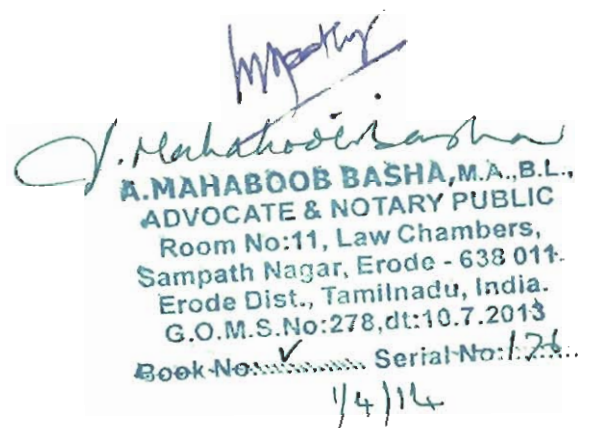 A. Mahaboob Basha
A.MAHABOOB BASHA, M.A.,B.L.,
ADVOCATE & NOTARY PUBLIC
Room No:11, Law Chambers,
Sampath Nagar, Erode - 638 011.
Erode Dist., Tamilnadu, India.
G.O.M.S.No:278,dt:10.7.2013
Book No: V Serial No: 176
1/4/14